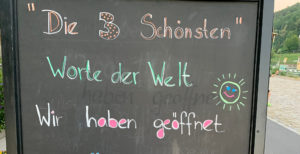 "Die 3 Schönsten"
Worte der Welt
Wir haben geöffnet